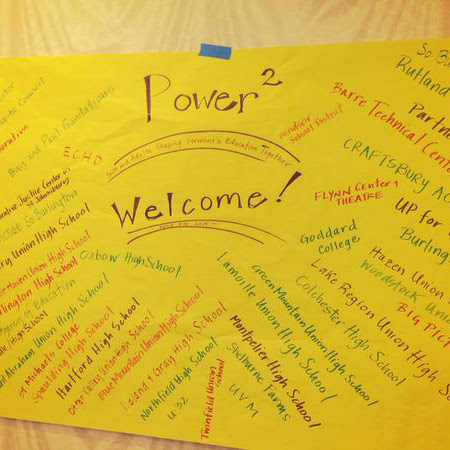 Power²
Youth and Adults Shaping Vermont's Education Together
Welcome!
Council
Bay and Paul Foundations
ECHO
Restorative Justice Center of
St. Johnsbury
Burlington
Union High School
Oxbow High School
Union High School
Burlington High School
of Education
High School
Mount Abraham Union High School
St Michael's College
Spaulding High School
Hartford High School
Otter Valley Union High School
Blue Mountain Union High School
Leland & Gray High School
Northfield High School
U-32
Twinfield Union
School
UVM
Shelburne Farms
Montpelier High School
Lamoille Union High School
Green Mountain Union High School
Colchester High School
Lake Region Union High School
Goddard
College
Windsor
School District
FLYNN Center
THEATRE
Woodstock Union
Hazen Union
BIG PICT
Burling
UP for
CRAFTSBURY AC
Barre Technical Center
Partn
Rutland
So. B